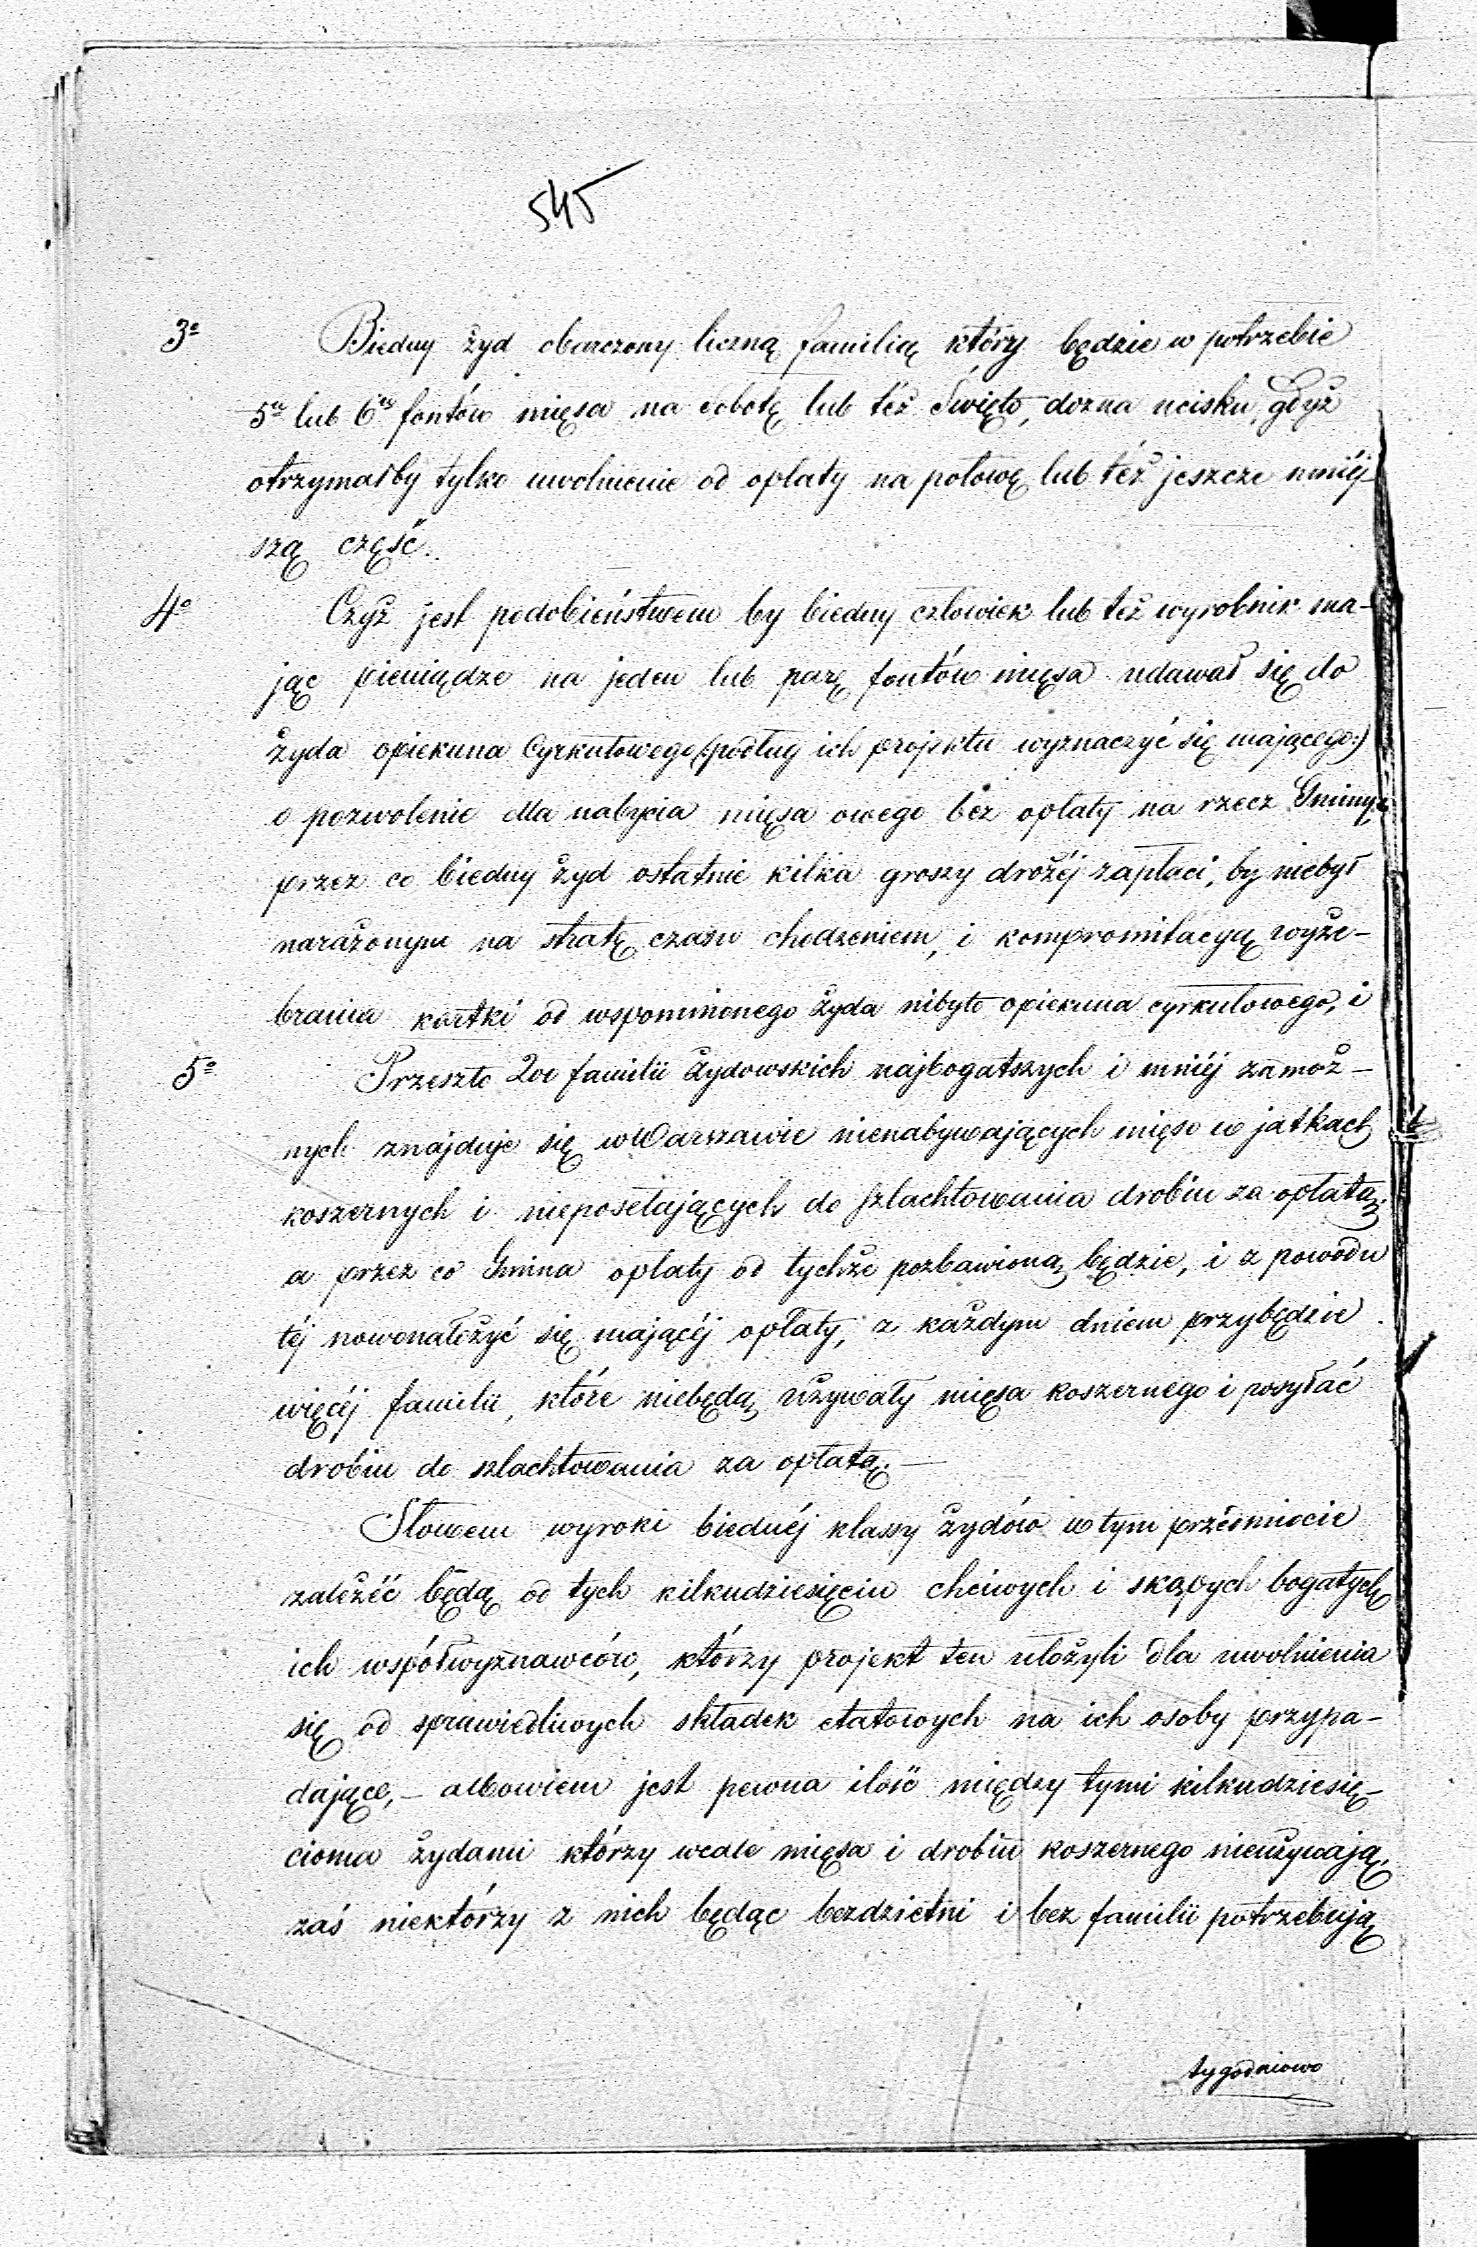 545
3º Biedny żyd obarczony liczną familią który będzie w potrzebie
5u lub 6u fontów mięsa na sobotę lub też Święto, dozna ucisku, gdyż
otrzymałby tylko uwolnienie od opłaty na połowę lub też jeszcze mniéj-
szą część.
4º Czyż jest podobieństwem by biedny człowiek lub też wyrobnik ma-
jąc pieniądze na jeden lub parę fontów mięsa udawał się do
żyda opiekuna Cyrkułowego (:podług ich projektu wyznaczyć się mającego:)
o pozwolenie dla nabycia mięsa owego bez opłaty na rzecz Gminy,
przez co biedny żyd ostatnie kilka groszy drożéj zapłaci, by niebył
narażonym na stratę czasu chodzeniem, i kompromitacyą wyże-
brania kartki od wspomnionego żyda nibyto opiekuna cyrkułowego, i
5º Przeszło 200 familii żydowskich najbogatszych i mniéj zamoż-
nych znajduje się w Warszawie nienabywających mięso w jatkach
koszernych i nieposełających do szlachtowania drobiu za opłatą,
a przez co Gmina opłaty od tychże pozbawioną będzie, i z powodu
téj nowonałożyć się mającéj opłaty, z każdym dniem przybędzie
więcéj familii, które niebędą używały mięsa koszernego i posyłać
drobiu do szlachtowania za opłatą.—
Słowem wyroki biednéj klassy żydów w tym przedmiocie
zależéć będą od tych kilkudziesięciu chciwych i skąpych bogatych
ich współwyznawców, którzy projekt ten ułożyli dla uwolnienia
się od sprawiedliwych składek etatowych na ich osoby przypa-
dające,- albowiem jest pewna ilość między tymi kilkudziesię-
cioma żydami którzy wcale mięsa i drobiu koszernego nieużywają,
zaś niektórzy z nich będąc bezdzietni i bez familii potrzebują
tygodniowo